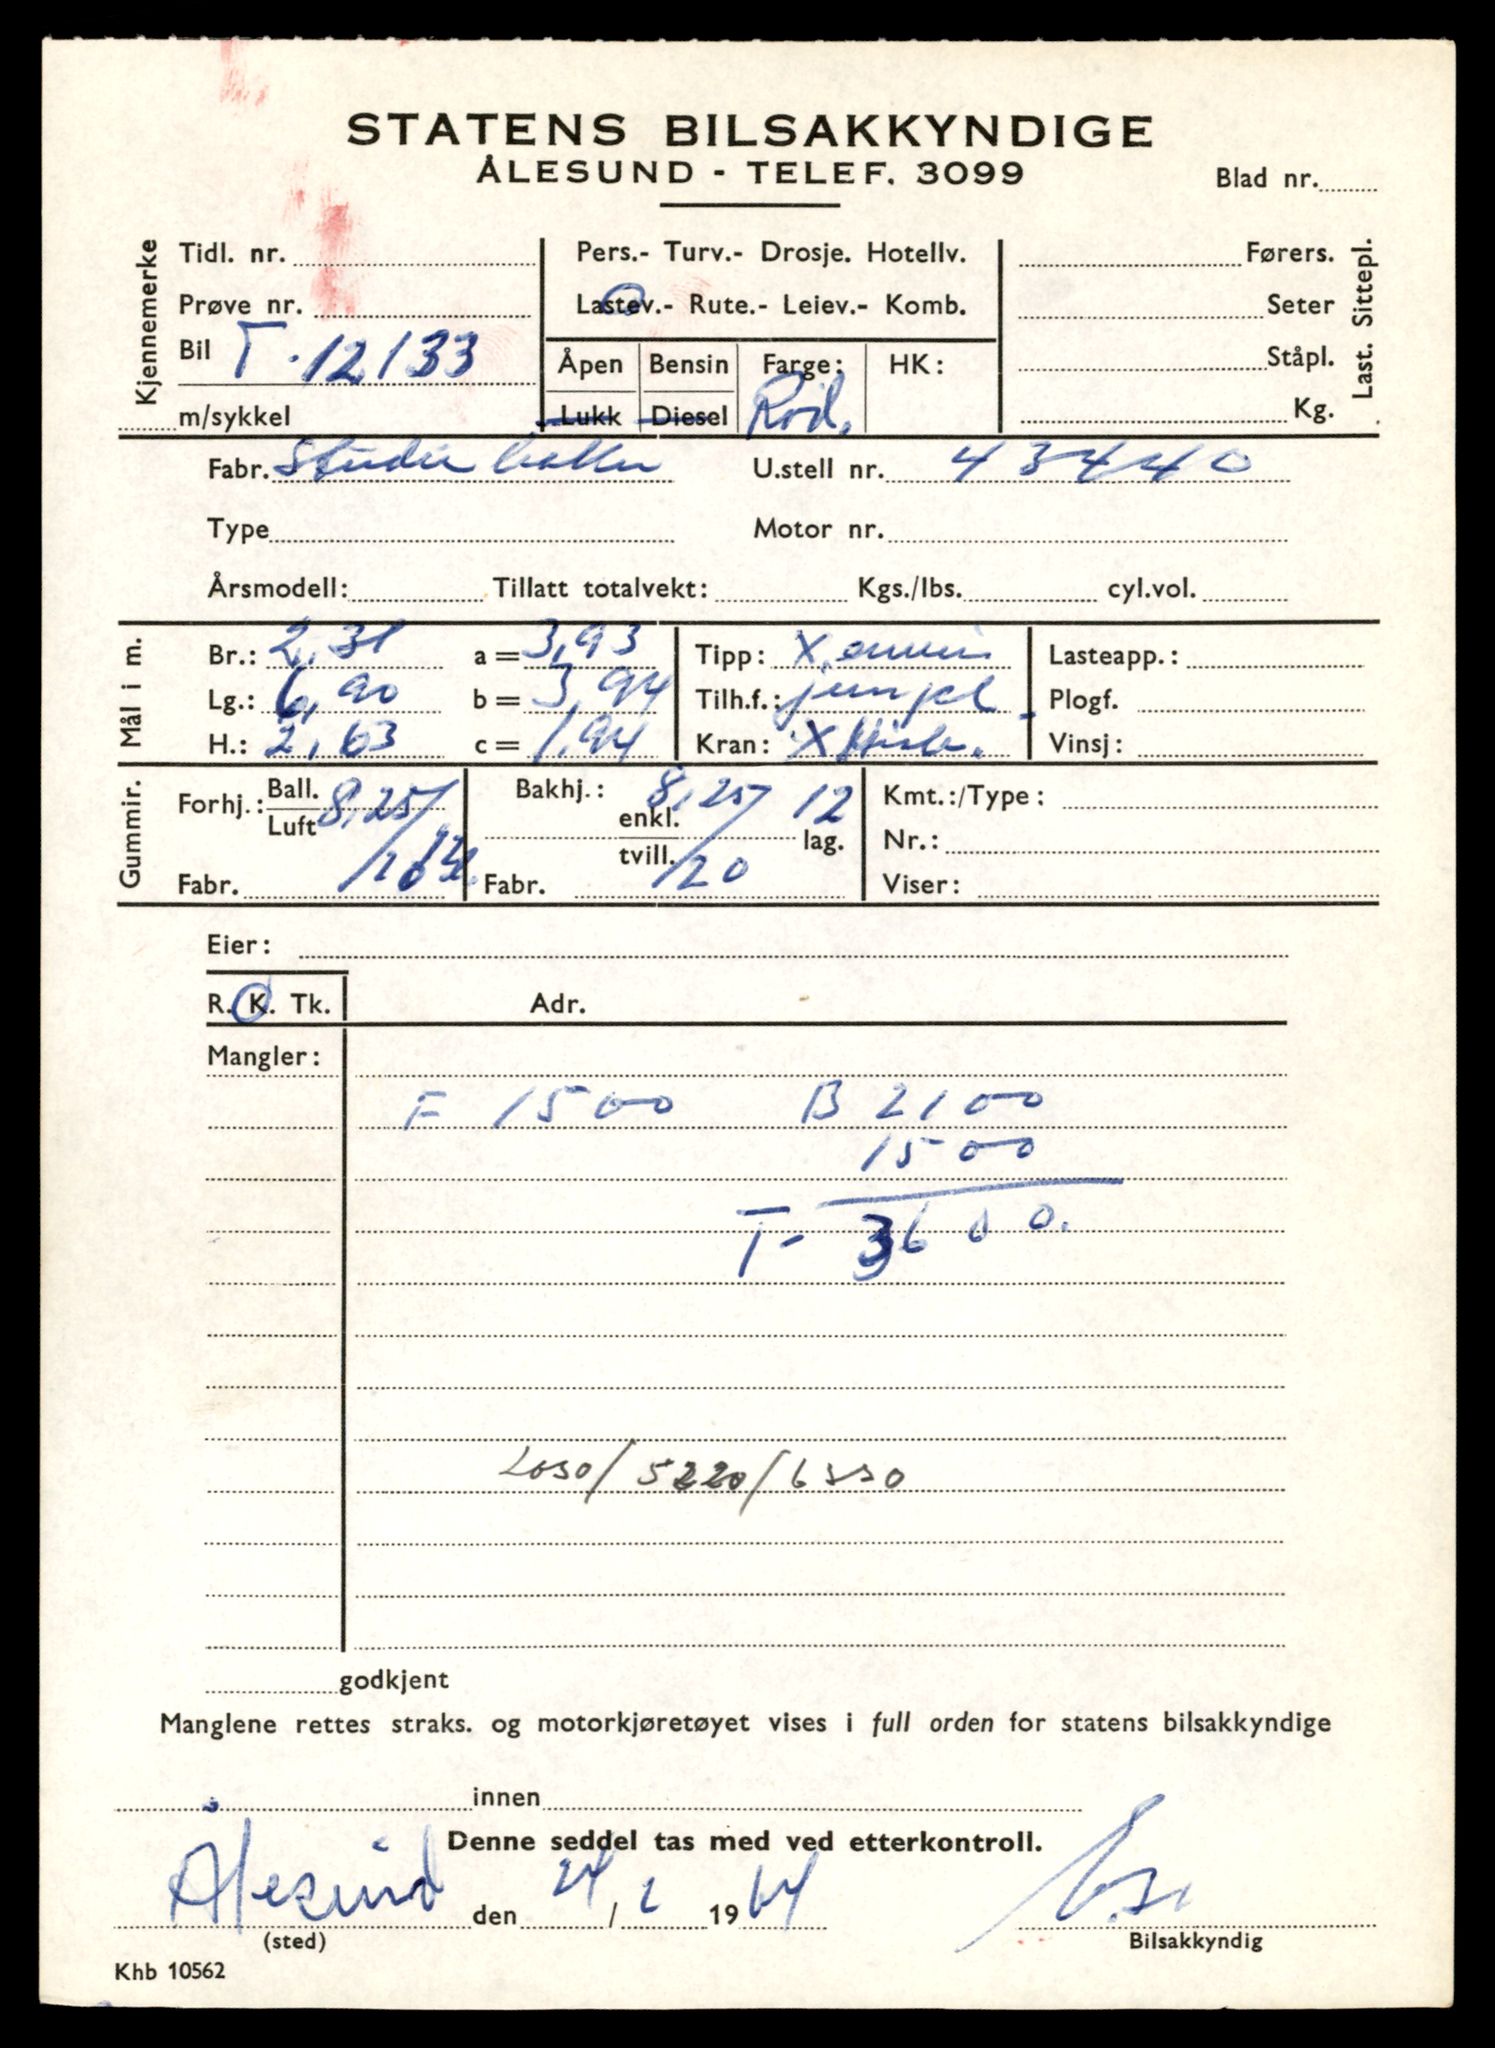 STATENS BILSAKKYNDIGE
ÅLESUND - TELEF. 3099
Blad nr.
Kjennemerke
Tidl. nr.
Prøve nr.
Bil T-12133
m/sykkel
Pers.- Turv.- Drosje. Hotellv.
Lastev.- Rute.- Leiev.- Komb.
Åpen Bensin Farge: HK:
Lukk Diesel Rød.
Førers.
Seter
Ståpl.
Kg.
Last. Sittepl.
Fabr. Studebakker U.stell nr. 43440
Type Motor nr.
Årsmodell: Tillatt totalvekt: Kgs./lbs. cyl.vol.
Mål i m.
Br.: 2,31 a = 3,93 Tipp: X Lasteapp.:
Lg.: 6,90 b = 3,94 Tilh.f.: Plogf.
H.: 2,63 c = 1,94 Kran: X Vinsj:
Gummir.
Forhj.: Ball. Luft 8,25/
Bakhj.: 8,25/20 12 lag.
enkl.
tvill.
Fabr. Fabr.
Kmt.:/Type:
Nr.:
Viser:
Eier:
R. K. Tk. Adr.
Mangler:
F 1500 B 2100
1500
T- 3600.
5220/
godkjent
Manglene rettes straks. og motorkjøretøyet vises i full orden for statens bilsakkyndige
innen
Denne seddel tas med ved etterkontroll.
Ålesund den 24/2 1964
(sted) Bilsakkyndig
Khb 10562